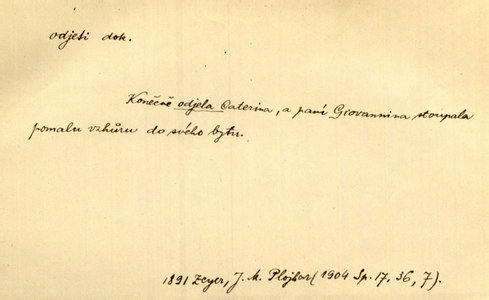 odjeti dok.
Konečně odjela Caterina, a paní Giovannina stoupala
pomalu vzhůru do svého bytu.
1891 Zeyer, J. M. Plojhar (1904 Sp. 17, 36, 7).